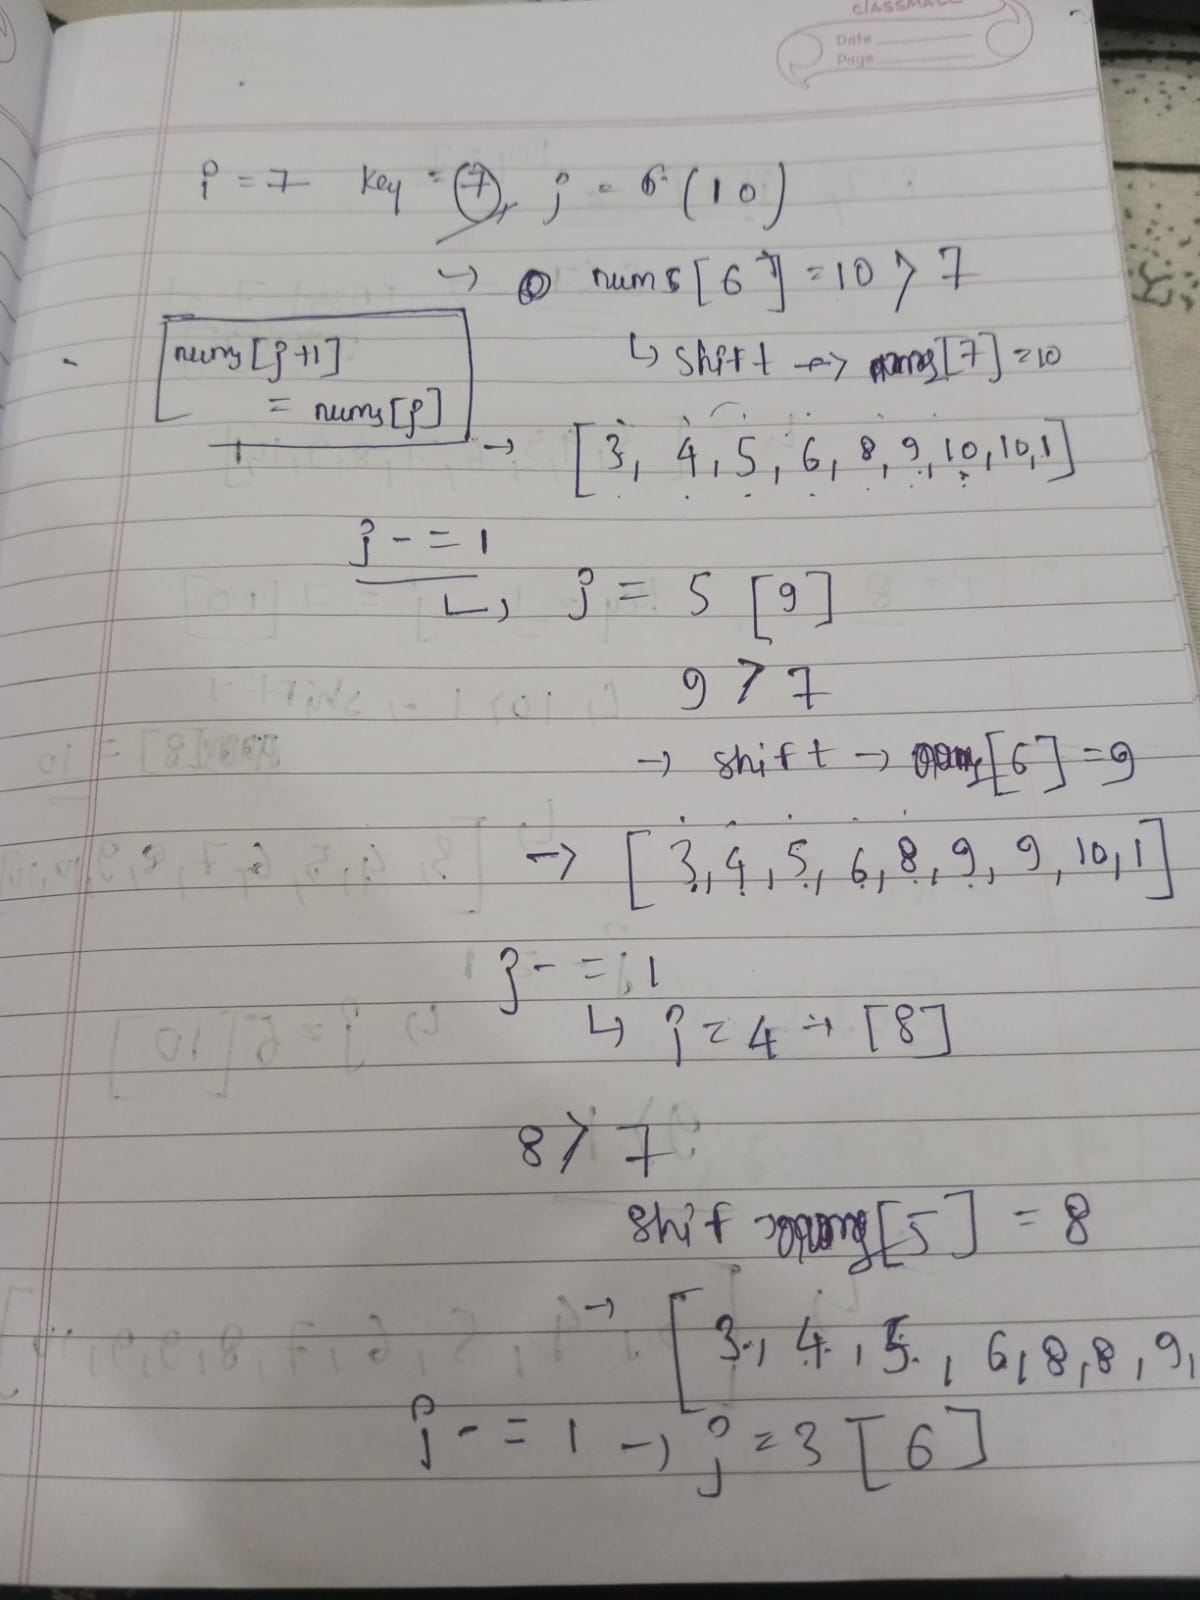 CLASSMATE
Date
Page
i = 7 Key = 7, j = 6 (10)
→ nums [6] = 10 > 7
↳ shift → nums[7] = 10
nums [j+1]
= nums [j]
→ [3, 4, 5, 6, 8, 9, 10, 10, 1]
j - = 1
↳ j = 5 [9]
9 > 7
→ shift → nums[6] = 9
→ [3, 4, 5, 6, 8, 9, 9, 10, 1]
j - = 1
↳ j = 4 → [8]
8 > 7
shift [5] = 8
→ [3, 4, 5, 6, 8, 8, 9,
j - = 1 → j = 3 [6]